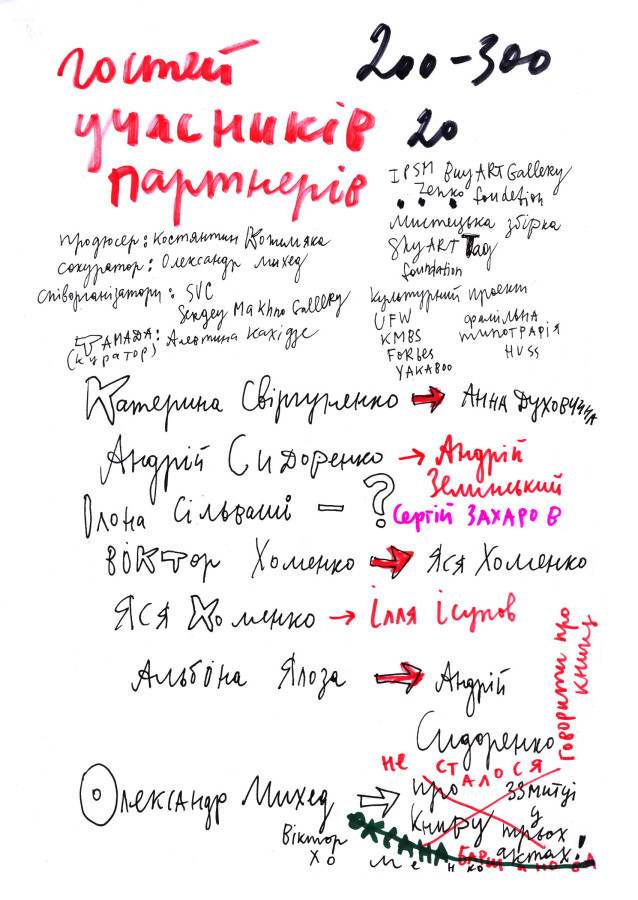 гостей 200-300
учасників 20
партнерів
IPSM Buy ART Gallery
Zenko foundation
Мистецька збірка
Sky ART Tag
foundation
продюсер: Костянтин Кожемяка
сокуратор: Олександр Михед
співорганізатори: SVC
Sergey Makhno Gallery
ТАМАДА: Алевтина Кахідзе
(куратор)
Культурний проект
UFW
KMBS
Forbes
YAKABOO
фамільна
типографія
HUSS
Катерина Свіргуненко → Анна Духовична
Андрій Сидоренко → Андрій
Зелинський
Ілона Сільваші – ?
Сергій ЗАХАРОВ
Віктор Хоменко → Яся Хоменко
Яся Хоменко → Ілля Ісупов
Альбіна Ялоза → Андрій
Сидоренко
Говорити про
книгу
не сталося
Олександр Михед → про
книгу
з митці
у
трьох
актах!
Віктор
Хоменко
ОКСАНА БАРШИНОВА